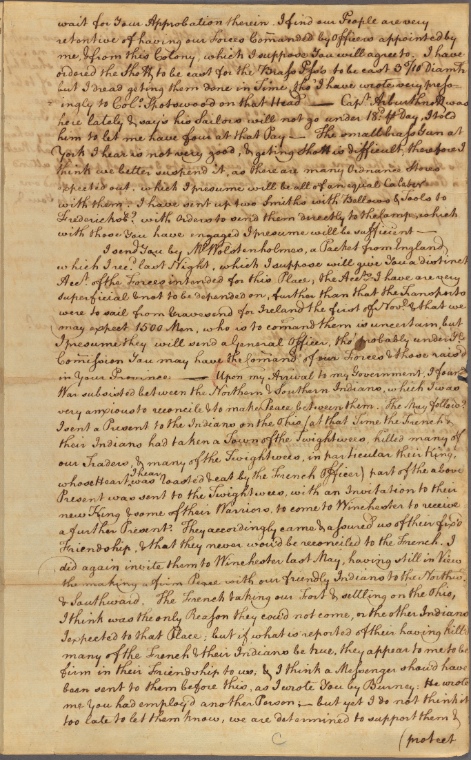 wait for Your Approbation therein. I find our People are very
retentive of having our Forces Comanded by Officers appointed by
me, & from this Colony, which I suppose You will agree to. I have
ordered the Shott to be cast for the Brass P to be cast 3 5/10 Diamtr
but I dread geting them done in Time, tho' I have wrote very press-
ingly to Colo. Spotswood on that Head — Capt. Arbuthnott was
here lately & says his Sailors will not go under 18d ⅌ day, I told
him to let me have four at that Pay — The small brass Gun at
York I hear is not very good, & geting Shott is difficult, therefore I
think we better suspend it, as there are many Ordnance Stores
expected out, which I presume will be all of an equal Caliber
with them: I have sent up two Smiths with Bellows & Tools to
Fredericksbg. with Orders to send them directly to the Camp, which
with those You have engaged I presume will be sufficient —
I send You by Mr. Wolstenholme, a Packet from England
which I recd. last Night, which I suppose will give You a distinct
Acct. of the Forces intended for this Place; the Accts. I have are very
superficial & not to be depended on, further than that the Transports
were to sail from Gravesend for Ireland the first of Novr. & that we
may expect 1500 Men, who is to comand them is uncertain, but
I presume they will send a General Officer, tho' probably under Yr.
Comission You may have the Comand of our Forces & those rais'd
in Your Province. — Upon my Arrival to my Government, I found
War subsisted between the Northern & Southern Indians, which I was
very anxious to reconcile & to make Peace between them. The May follow'g
I sent a Present to the Indians on the Ohio, (at that Time the French &
their Indians had taken a Town of the Twightwees, killed many of
our Traders, & many of the Twightwees, in particular their King,
whose Heart, I hear, was roasted & eat by the French Officer) part of the above
Present was sent to the Twightwees, with an Invitation to their
new King & some of their Warriors, to come to Winchester to receive
a further Present. They accordingly came & assured us of their fix'd
Friendship, & that they never wou'd be reconciled to the French. I
did again invite them to Winchester last May, having still in View
the making a firm Peace with our friendly Indians to the Northwd.
& Southward. The French taking our Fort & settling on the Ohio,
I think was the only Reason they could not come, or the other Indians
I expected to that Place; but if what is reported of their having kill'd
many of the French & their Indians be true, they appear to me to be
firm in their Friendship to us, & I think a Messenger shou'd have
been sent to them before this, as I wrote You by Burney: He wrote
me You had employ'd another Person; — but yet I do not think it
too late to let them know, we are determined to support them &
(protect